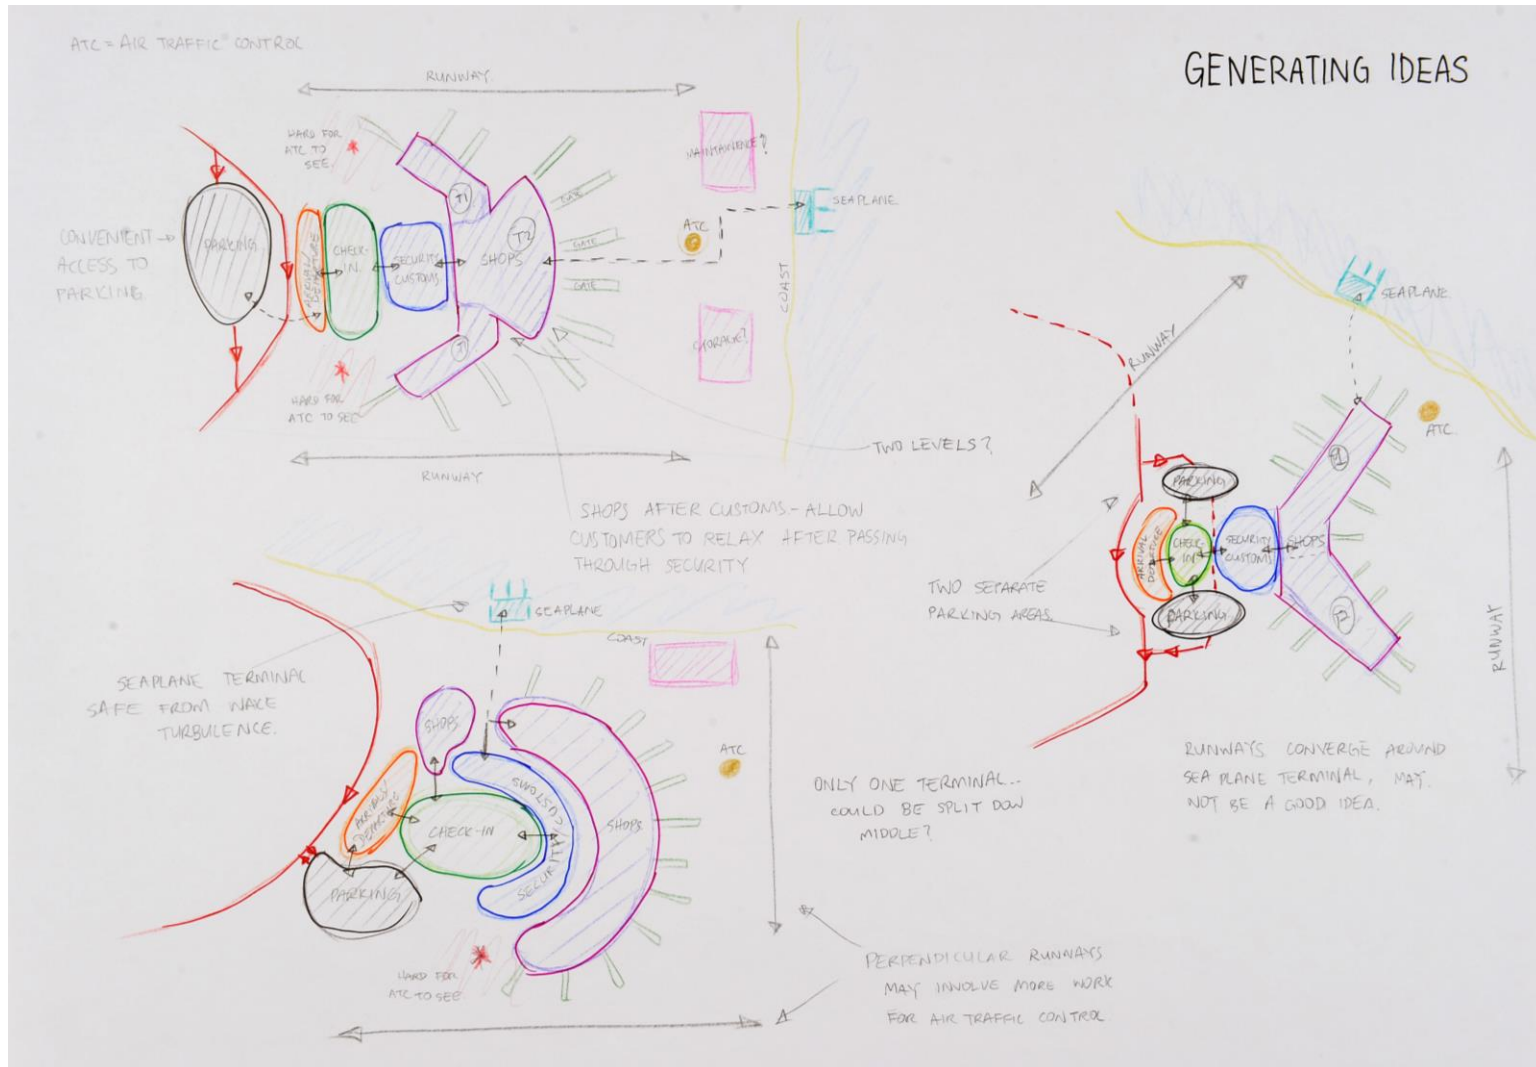 GENERATING IDEAS
ATC = AIR TRAFFIC CONTROL
RUNWAY
HARD FOR
ATC TO
SEE.
CONVENIENT
ACCESS TO
PARKING
PARKING
ARRIVAL/
DEPARTURE
CHECK-
IN.
SECURITY
CUSTOMS
T1
T2
SHOPS
T1
GATE
GATE
GATE
MAINTAINENCE?
ATC
STORAGE?
SEAPLANE
COAST
HARD FOR
ATC TO SEE
RUNWAY
TWO LEVELS?
SHOPS AFTER CUSTOMS - ALLOW
CUSTOMERS TO RELAX AFTER PASSING
THROUGH SECURITY
SEAPLANE
COAST
SEAPLANE TERMINAL
SAFE FROM WAKE
TURBULENCE.
SHOPS
ARRIVALS/
DEPARTURE
CHECK-IN
CUSTOMS
SECURITY
SHOPS
PARKING
ATC
HARD FOR
ATC TO SEE
ONLY ONE TERMINAL...
COULD BE SPLIT DOW
MIDDLE?
PERPENDICULAR RUNWAYS
MAY INVOLVE MORE WORK
FOR AIR TRAFFIC CONTROL.
SEAPLANE
RUNWAY
ATC
PARKING
ARRIVAL
DEPARTURE
CHECK-
IN
SECURITY
CUSTOMS
SHOPS
PARKING
T2
TWO SEPARATE
PARKING AREAS.
RUNWAY
RUNWAYS CONVERGE AROUND
SEA PLANE TERMINAL, MAY
NOT BE A GOOD IDEA.